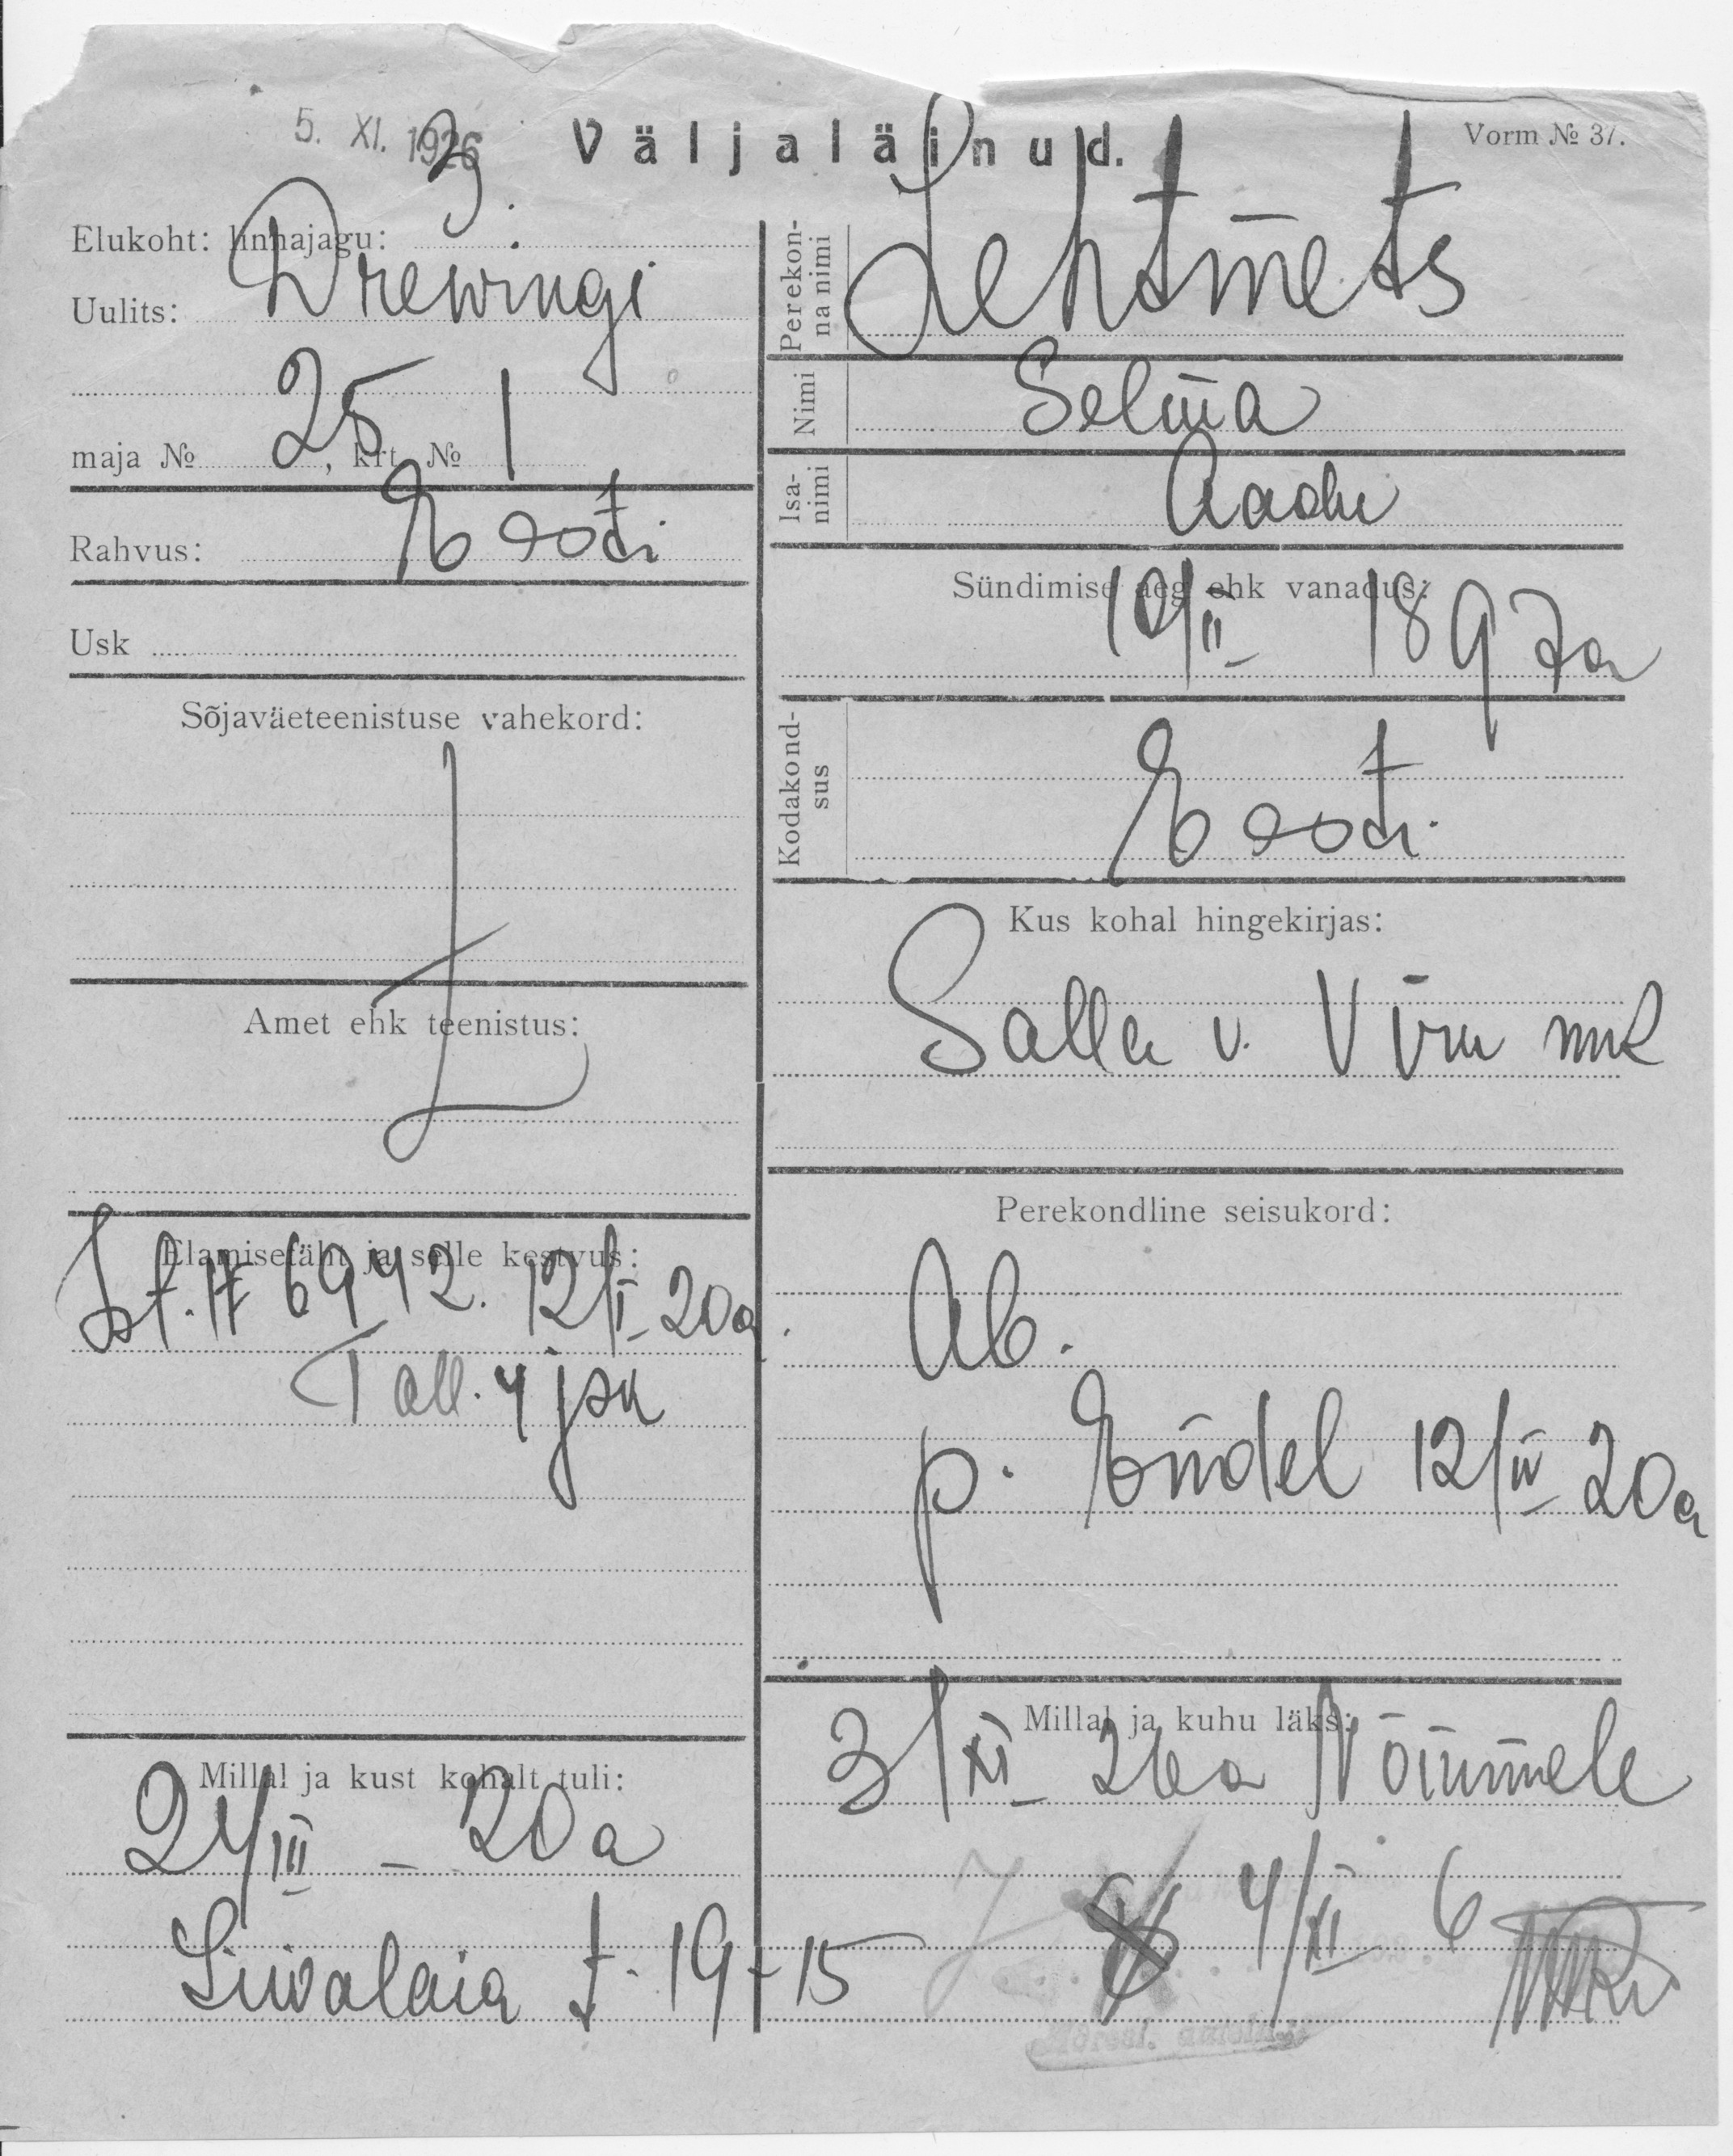 5. XI. 1926
Väljaläinud.
Vorm № 37.
Elukoht: linnajagu: 3.
Uulits: Drewingi
maja № 25, krt. № 1
Rahvus: Eesti
Usk
Sõjaväeteenistuse vahekord:
Amet ehk teenistus:
Elamisetäht ja selle kestvus:
6942. 12/I 20a.
Tall. 4 jsk
Millal ja kust kohalt tuli:
24/III 20 a
Liivalaia t. 19-15
Perekonna nimi Lehtmets
Nimi Selma
Isanimi Aadu
Sündimise aeg ehk vanadus:
10/II 1897a
Kodakondsus
Eesti
Kus kohal hingekirjas:
Salla v. Viru mk
Perekondline seisukord:
Ab.
p. Endel 12/IV 20a
Millal ja kuhu läks:
3/XI 26a Nõmmele
4/XI 6